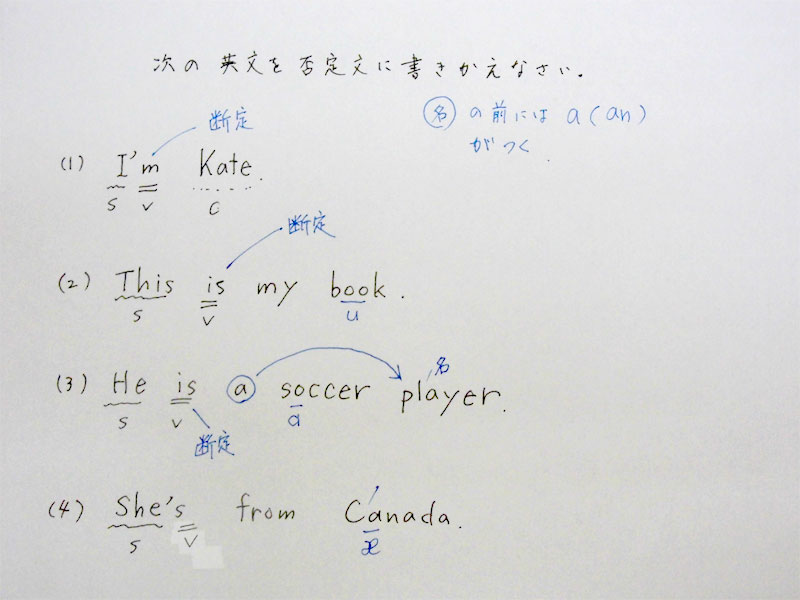 次の 英文を 否定文に書きかえなさい。
名 の前には a (an)
がつく.
断定
(1) I'm Kate.
S V C
断定
(2) This is my book.
S V u
名
(3) He is a soccer player.
S V a
断定
(4) She's from Canada.
S V æ